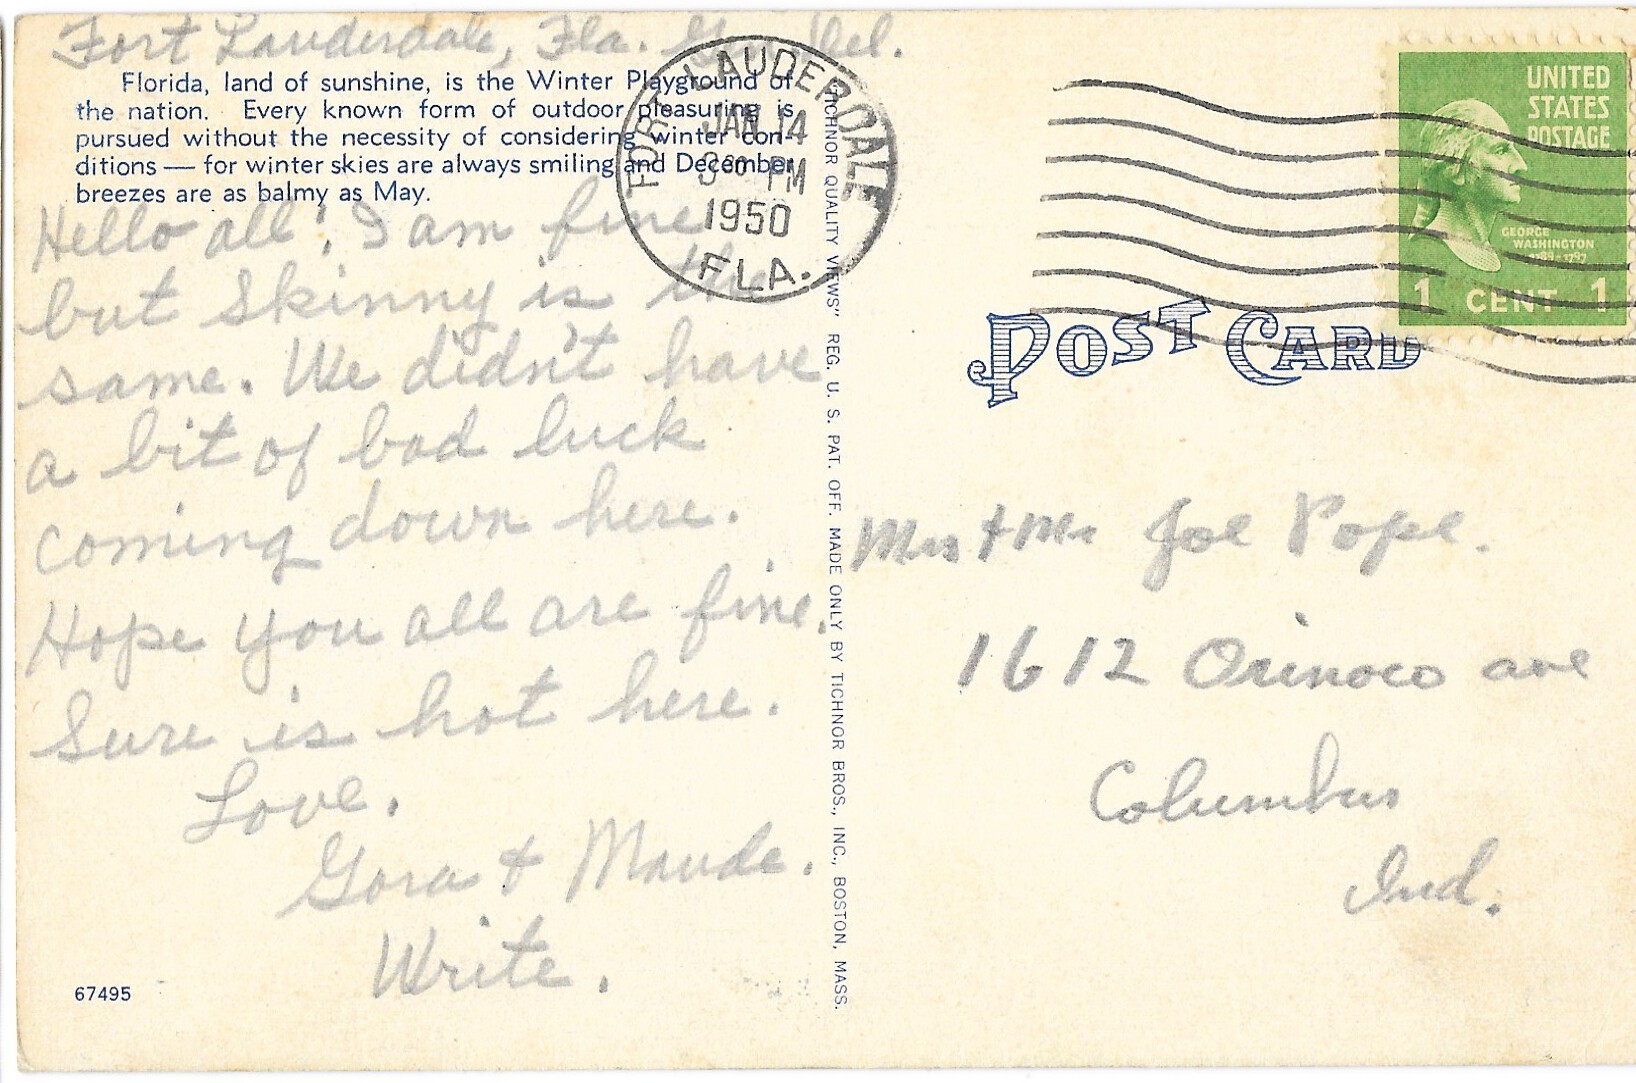 Fort Lauderdale, Fla. Gen. Del.
Florida, land of sunshine, is the Winter Playground of
the nation. Every known form of outdoor pleasuring is
pursued without the necessity of considering winter con-
ditions — for winter skies are always smiling and December
breezes are as balmy as May.
Hello all; I am fine
but Skinny is the
same. We didn't have
a bit of bad luck
coming down here.
Hope you all are fine.
Sure is hot here.
Love.
Gora & Maude.
Write.
67495
FORT LAUDERDALE
JAN 14
3 00 PM
1950
FLA.
TICHNOR QUALITY VIEWS" REG. U. S. PAT. OFF. MADE ONLY BY TICHNOR BROS., INC., BOSTON, MASS.
UNITED
STATES
POSTAGE
GEORGE
WASHINGTON
1789-1797
1 CENT 1
POST CARD
Mrs & Mr Joe Pope.
1612 Orinoco ave
Columbus
Ind.